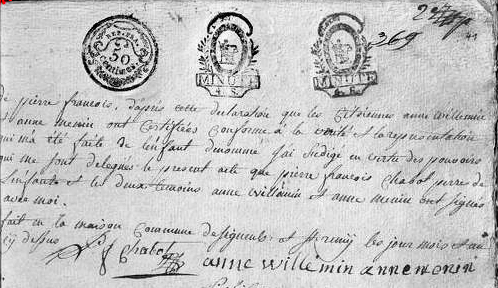 REP. FRA.
50
Centimes
MINUTE
4. S.
MINUTE
4. S.
369
de pierre francois, dapres cette declaration que les citoiennes anne willemin
anne menin ont certifiées conforme à la verité et la representation
qui m'a été faite de l'enfant denommé j'ai rédigé en vertu des pouvoirs
qui me sont delegués le present acte que pierre francois Chabol perre de
L'enfant et les deux temoins anne willemin et anne menin ont signés
avec moi.
fait en la maison commune de les jour mois et an
cy dessus Chabol anne willemin anne menin